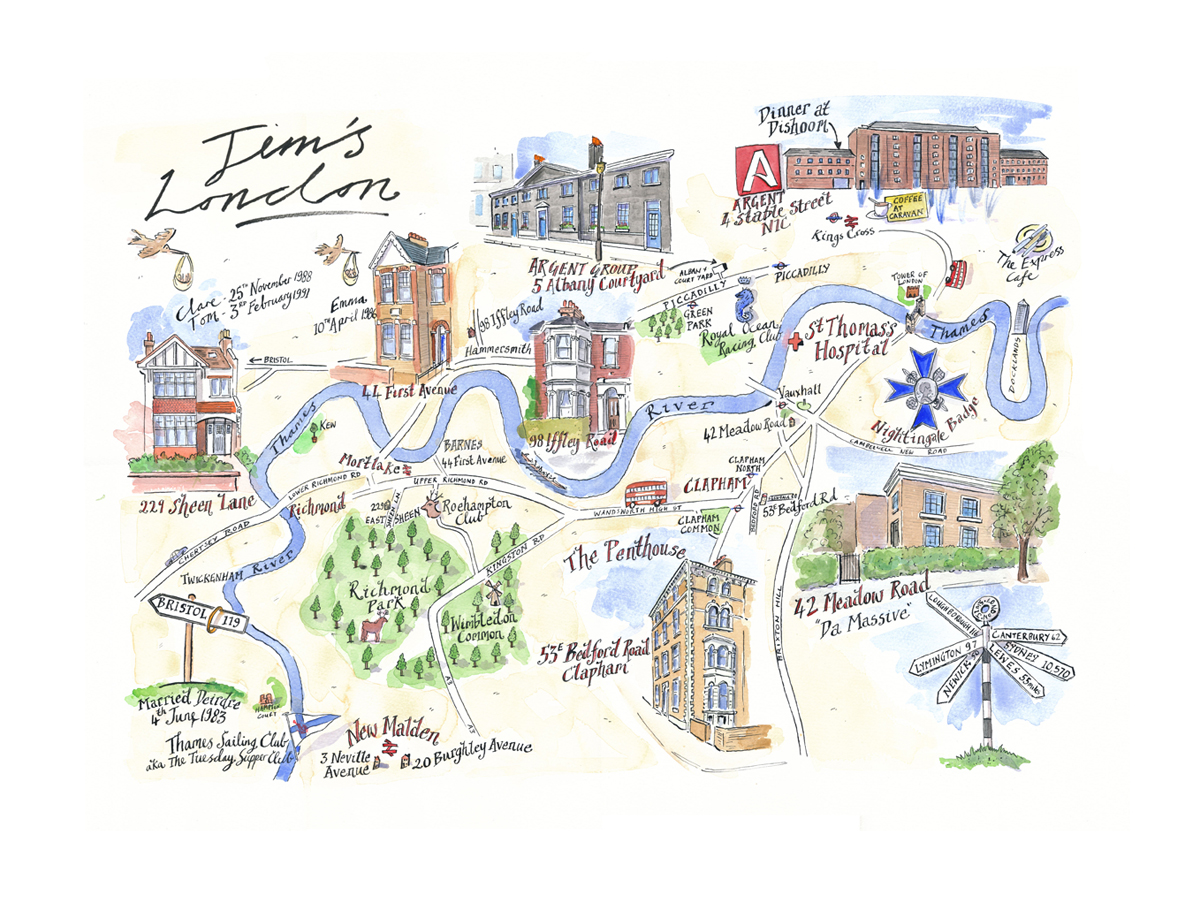 Jim's
London
Dinner at
Dishoom
A
ARGENT
4 Stable Street
N1C
COFFEE
AT
CARAVAN
Kings Cross
The Express
Cafe
ARGENT GROUP
5 Albany Courtyard
ALBANY
COURT YARD
PICCADILLY
PICCADILLY
GREEN
PARK
Royal Ocean
Racing Club
TOWER OF
LONDON
St Thomas's
Hospital
Thames
DOCKLANDS
Clare - 25TH November 1988
Tom - 3RD February 1991
Emma
10TH April 1986
98 Iffley Road
Hammersmith
BRISTOL
44 First Avenue
98 Iffley Road
River
Vauxhall
42 Meadow Road
Nightingale Badge
CAMBERWELL NEW ROAD
Thames
KEW
Mortlake
BARNES
44 First Avenue
229 Sheen Lane
LOWER RICHMOND RD
UPPER RICHMOND RD
Richmond
229
SHEEN LN
EAST SHEEN
Roehampton
Club
CHERTSEY ROAD
WANDSWORTH HIGH ST
CLAPHAM
NORTH
CLAPHAM
CLAPHAM
COMMON
BEDFORD RD
53E Bedford Rd
KINGSTON RD
TWICKENHAM
River
Richmond
Park
Wimbledon
Common
The Penthouse
53E Bedford Road
Clapham
BRIXTON HILL
42 Meadow Road
"Da Massive"
BRISTOL 119
Married Deirdre
4th June 1983
HAMPTON
COURT
Thames Sailing Club
aka The Tuesday Supper Club
New Malden
3 Neville
Avenue
20 Burghley Avenue
A3
A3
LOUGHBOROUGH 116
CANTERBURY 62
SYDNEY 10,570
LYMINGTON 97
LEWES 55mls